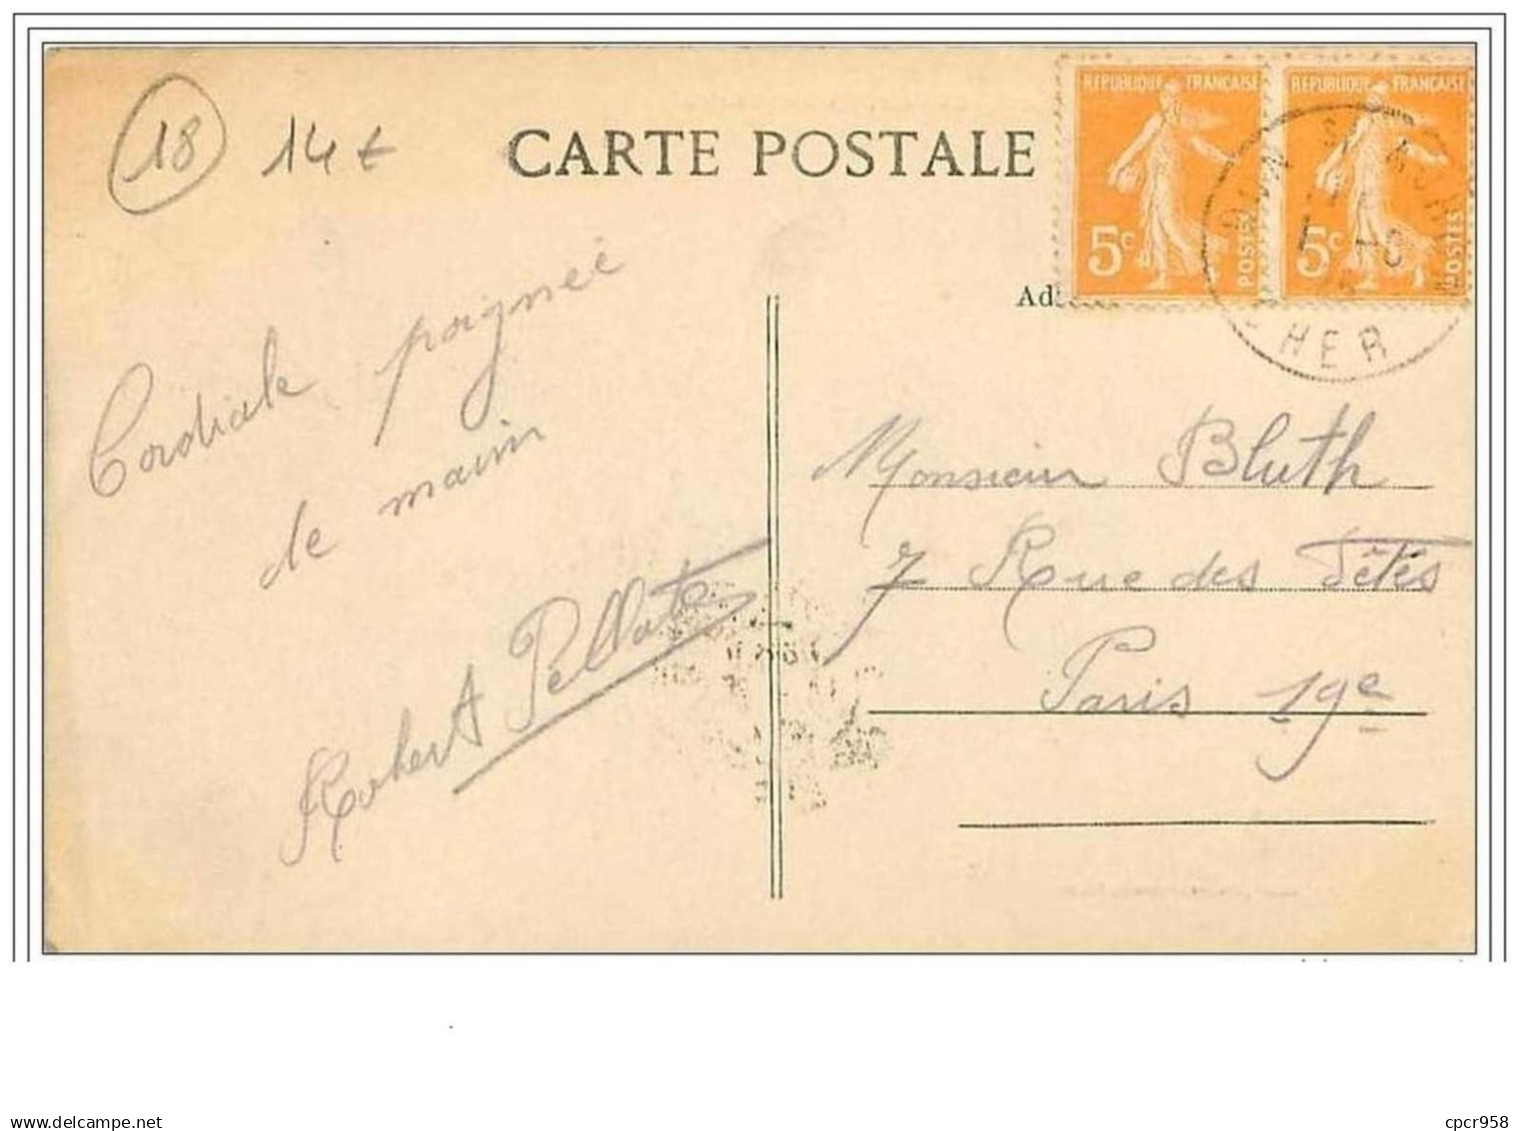 18 14€
CARTE POSTALE
REPUBLIQUE FRANÇAISE
5c
POSTES
REPUBLIQUE FRANÇAISE
5c
POSTES
DUN S
CHER
Cordiale poignée
de main
Robert Pellate
Monsieur Bluth
7 Rue des Fêtes
Paris 19e
delcampe.net
cpcr958